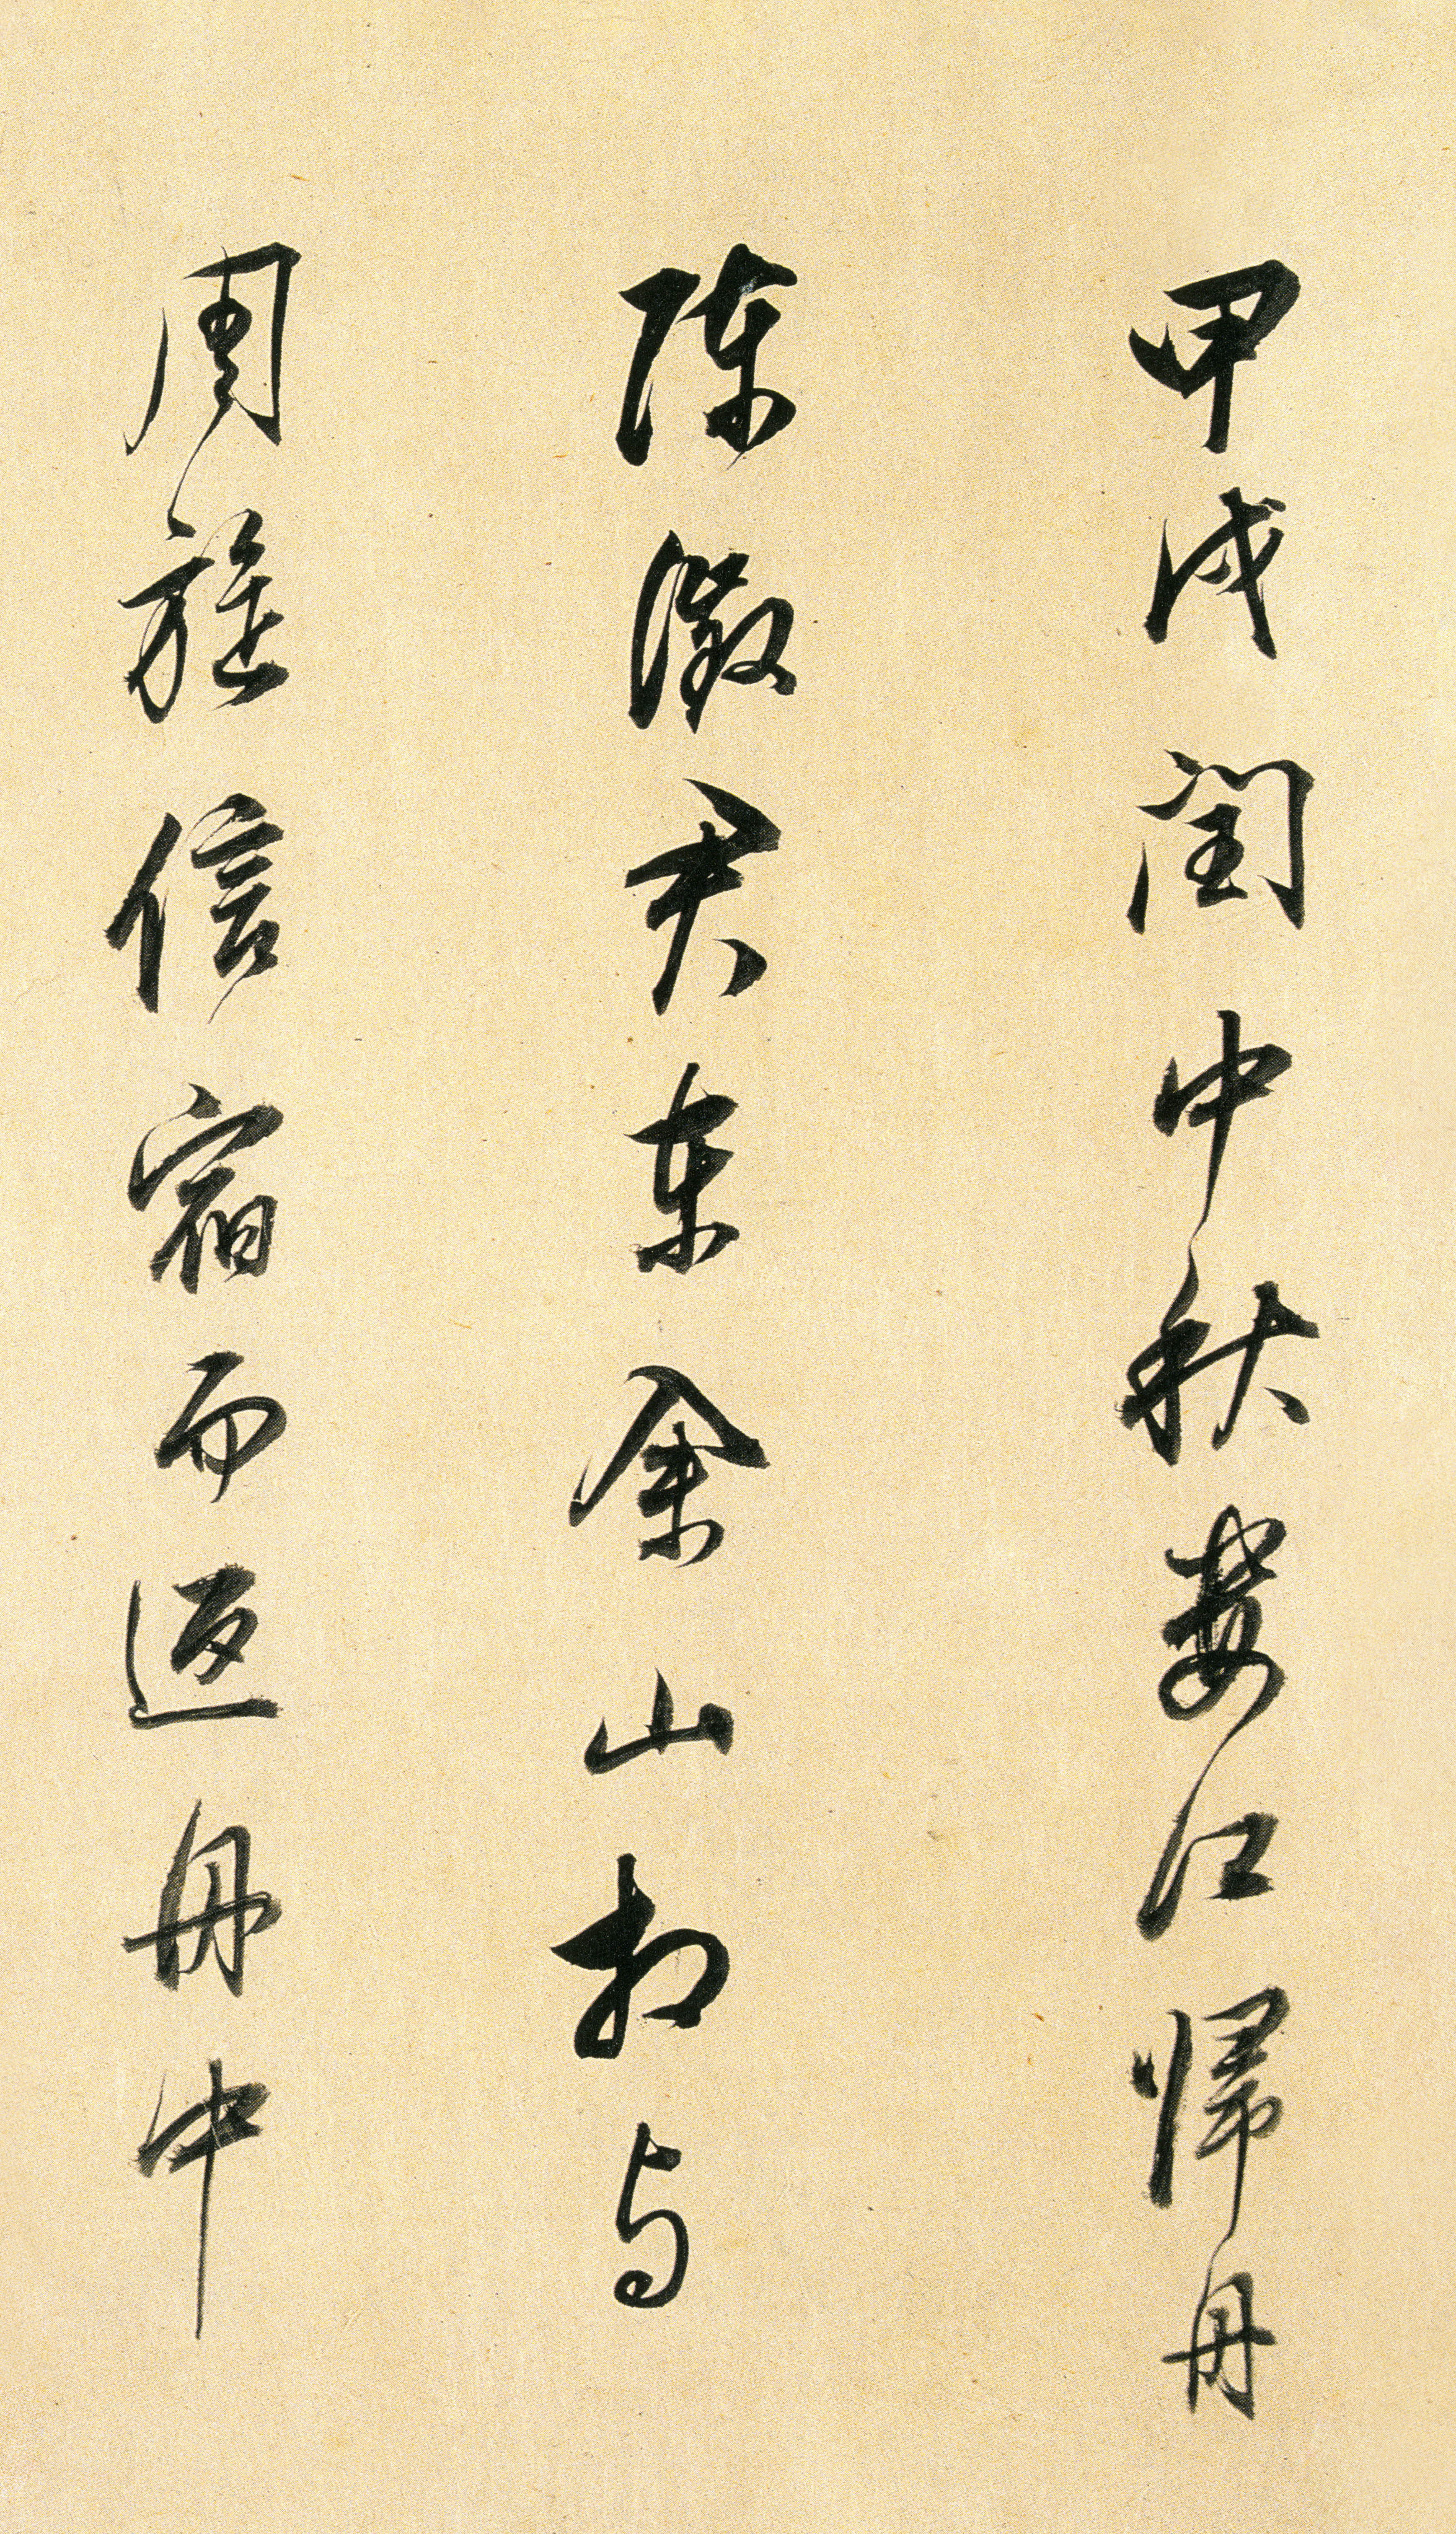 甲戌閏中秋婁江歸舟
陳徵君東佘山相與
周旋信宿而返舟中